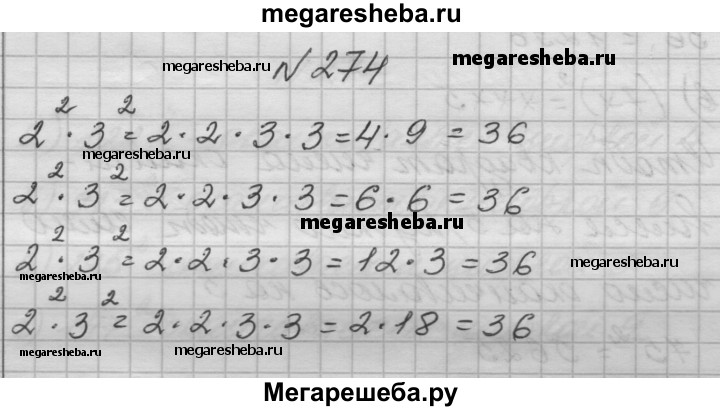 megaresheba.ru
megaresheba.ru № 274 megaresheba.ru
2² · 3² = 2 · 2 · 3 · 3 = 4 · 9 = 36
megaresheba.ru
2² · 3² = 2 · 2 · 3 · 3 = 6 · 6 = 36
megaresheba.ru
2² · 3² = 2 · 2 · 3 · 3 = 12 · 3 = 36 megaresheba.ru
megaresheba.ru
2² · 3² = 2 · 2 · 3 · 3 = 2 · 18 = 36
megaresheba.ru megaresheba.ru
Мегарешеба.ру